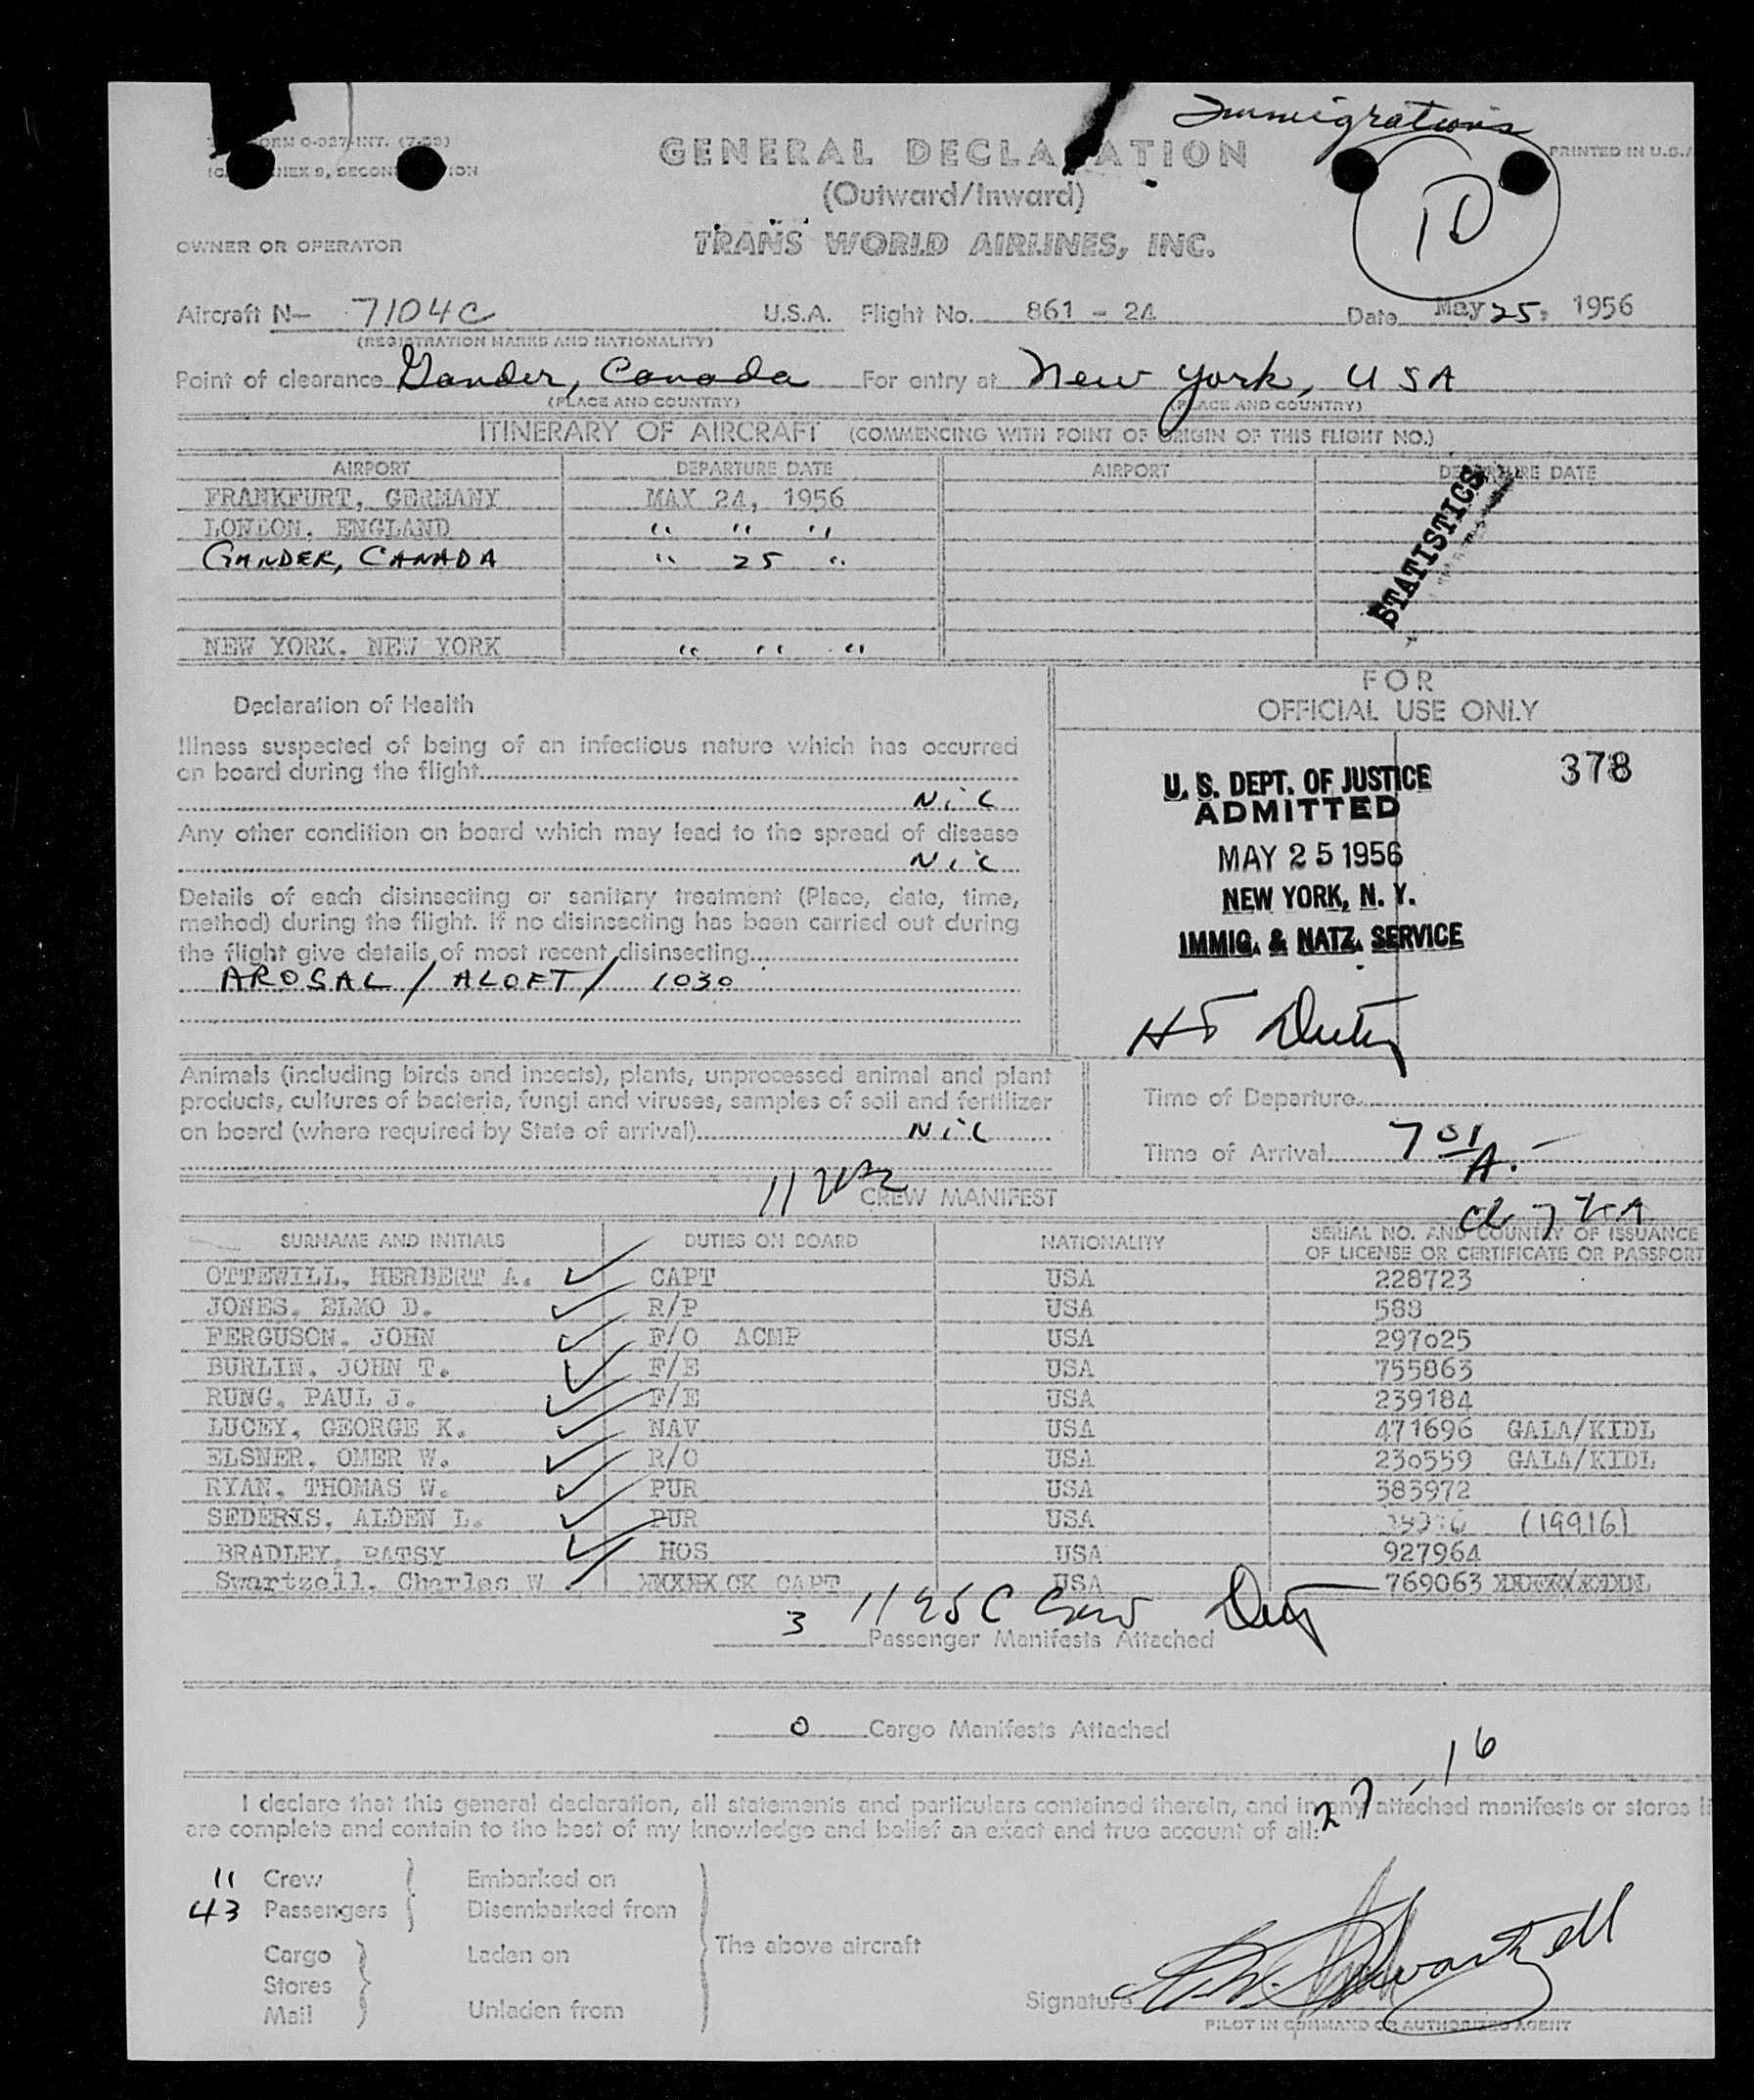 Immigrations
FORM O-327-INT. (7-53)
GENERAL DECLARATION
PRINTED IN U.S.A
(Outward/Inward)
10
OWNER OR OPERATOR
TRANS WORLD AIRLINES, INC.
Aircraft N- 7104C U.S.A. Flight No. 861 - 24 Date May 25, 1956
(REGISTRATION MARKS AND NATIONALITY)
Point of clearance Gander, Canada For entry at New York, USA
(PLACE AND COUNTRY) (PLACE AND COUNTRY)
ITINERARY OF AIRCRAFT (COMMENCING WITH POINT OF ORIGIN OF THIS FLIGHT NO.)
AIRPORT DEPARTURE DATE AIRPORT DEPARTURE DATE
FRANKFURT, GERMANY MAY 24, 1956
LONDON, ENGLAND " " "
GANDER, CANADA " 25 "
STATISTICS
NEW YORK. NEW YORK " " "
FOR
OFFICIAL USE ONLY
Declaration of Health
Illness suspected of being of an infectious nature which has occurred
on board during the flight
NiL
Any other condition on board which may lead to the spread of disease
NiL
Details of each disinsecting or sanitary treatment (Place, date, time,
method) during the flight. If no disinsecting has been carried out during
the flight give details of most recent disinsecting
AROSAL / ALOFT / 1030
378
U. S. DEPT. OF JUSTICE
ADMITTED
MAY 25 1956
NEW YORK, N. Y.
IMMIG. & NATZ. SERVICE
Animals (including birds and insects), plants, unprocessed animal and plant
products, cultures of bacteria, fungi and viruses, samples of soil and fertilizer
on board (where required by State of arrival) NiL
Time of Departure
Time of Arrival 7 01 A.
CREW MANIFEST
SURNAME AND INITIALS DUTIES ON BOARD NATIONALITY SERIAL NO. AND COUNTRY OF ISSUANCE
OF LICENSE OR CERTIFICATE OR PASSPORT
OTTEWILL, HERBERT A. CAPT USA 228723
JONES, ELMO D. R/P USA 588
FERGUSON, JOHN F/O ACMP USA 297025
BURLIN, JOHN T. F/E USA 755863
RUNG, PAUL J. F/E USA 239184
LUCEY, GEORGE K. NAV USA 471696 GALA/KIDL
ELSNER, OMER W. R/O USA 230559 GALA/KIDL
RYAN, THOMAS W. PUR USA 383972
SEDERIS, ALDEN L. PUR USA (19916)
BRADLEY, PATSY HOS USA 927964
Swartzell, Charles W CK CAPT USA 769063
11 USC Crew
3 Passenger Manifests Attached
0 Cargo Manifests Attached
16
27
I declare that this general declaration, all statements and particulars contained therein, and in any attached manifests or stores
are complete and contain to the best of my knowledge and belief an exact and true account of all:
11 Crew Embarked on
43 Passengers Disembarked from
The above aircraft
Cargo Laden on
Stores
Mail Unladen from
Signature C.W. Swartzell
PILOT IN COMMAND OR AUTHORIZED AGENT